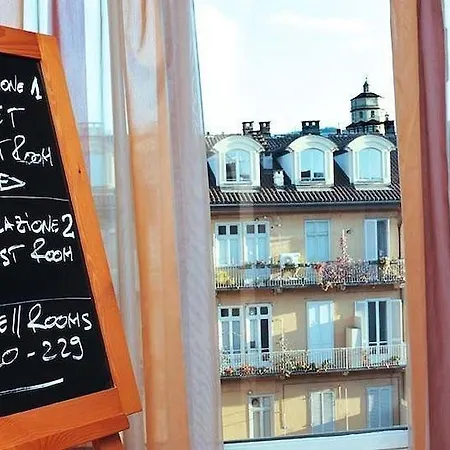 ZIONE 1
ET
T ROOM
LAZIONE 2
ST ROOM
E // ROOMS
0 - 229